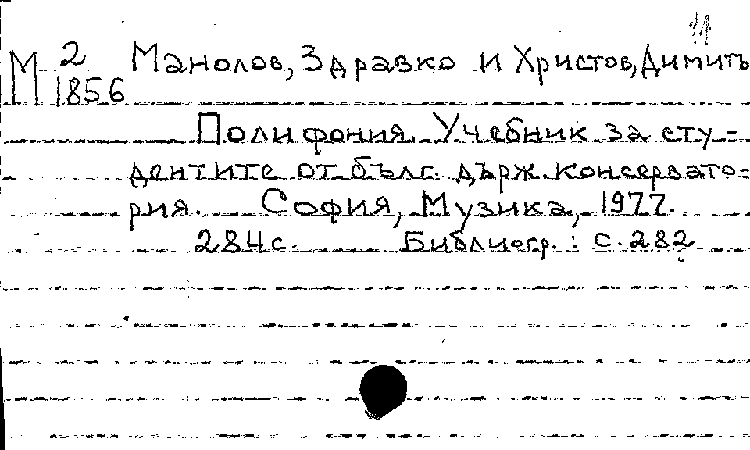 М 2 Манолов, Здравко и Христов, Димитъ
1856
Полифония. Учебник за сту-
дентите от бълг. държ. консервато-
рия. София, Музика, 1977.
284 с. Библиогр.: с. 282